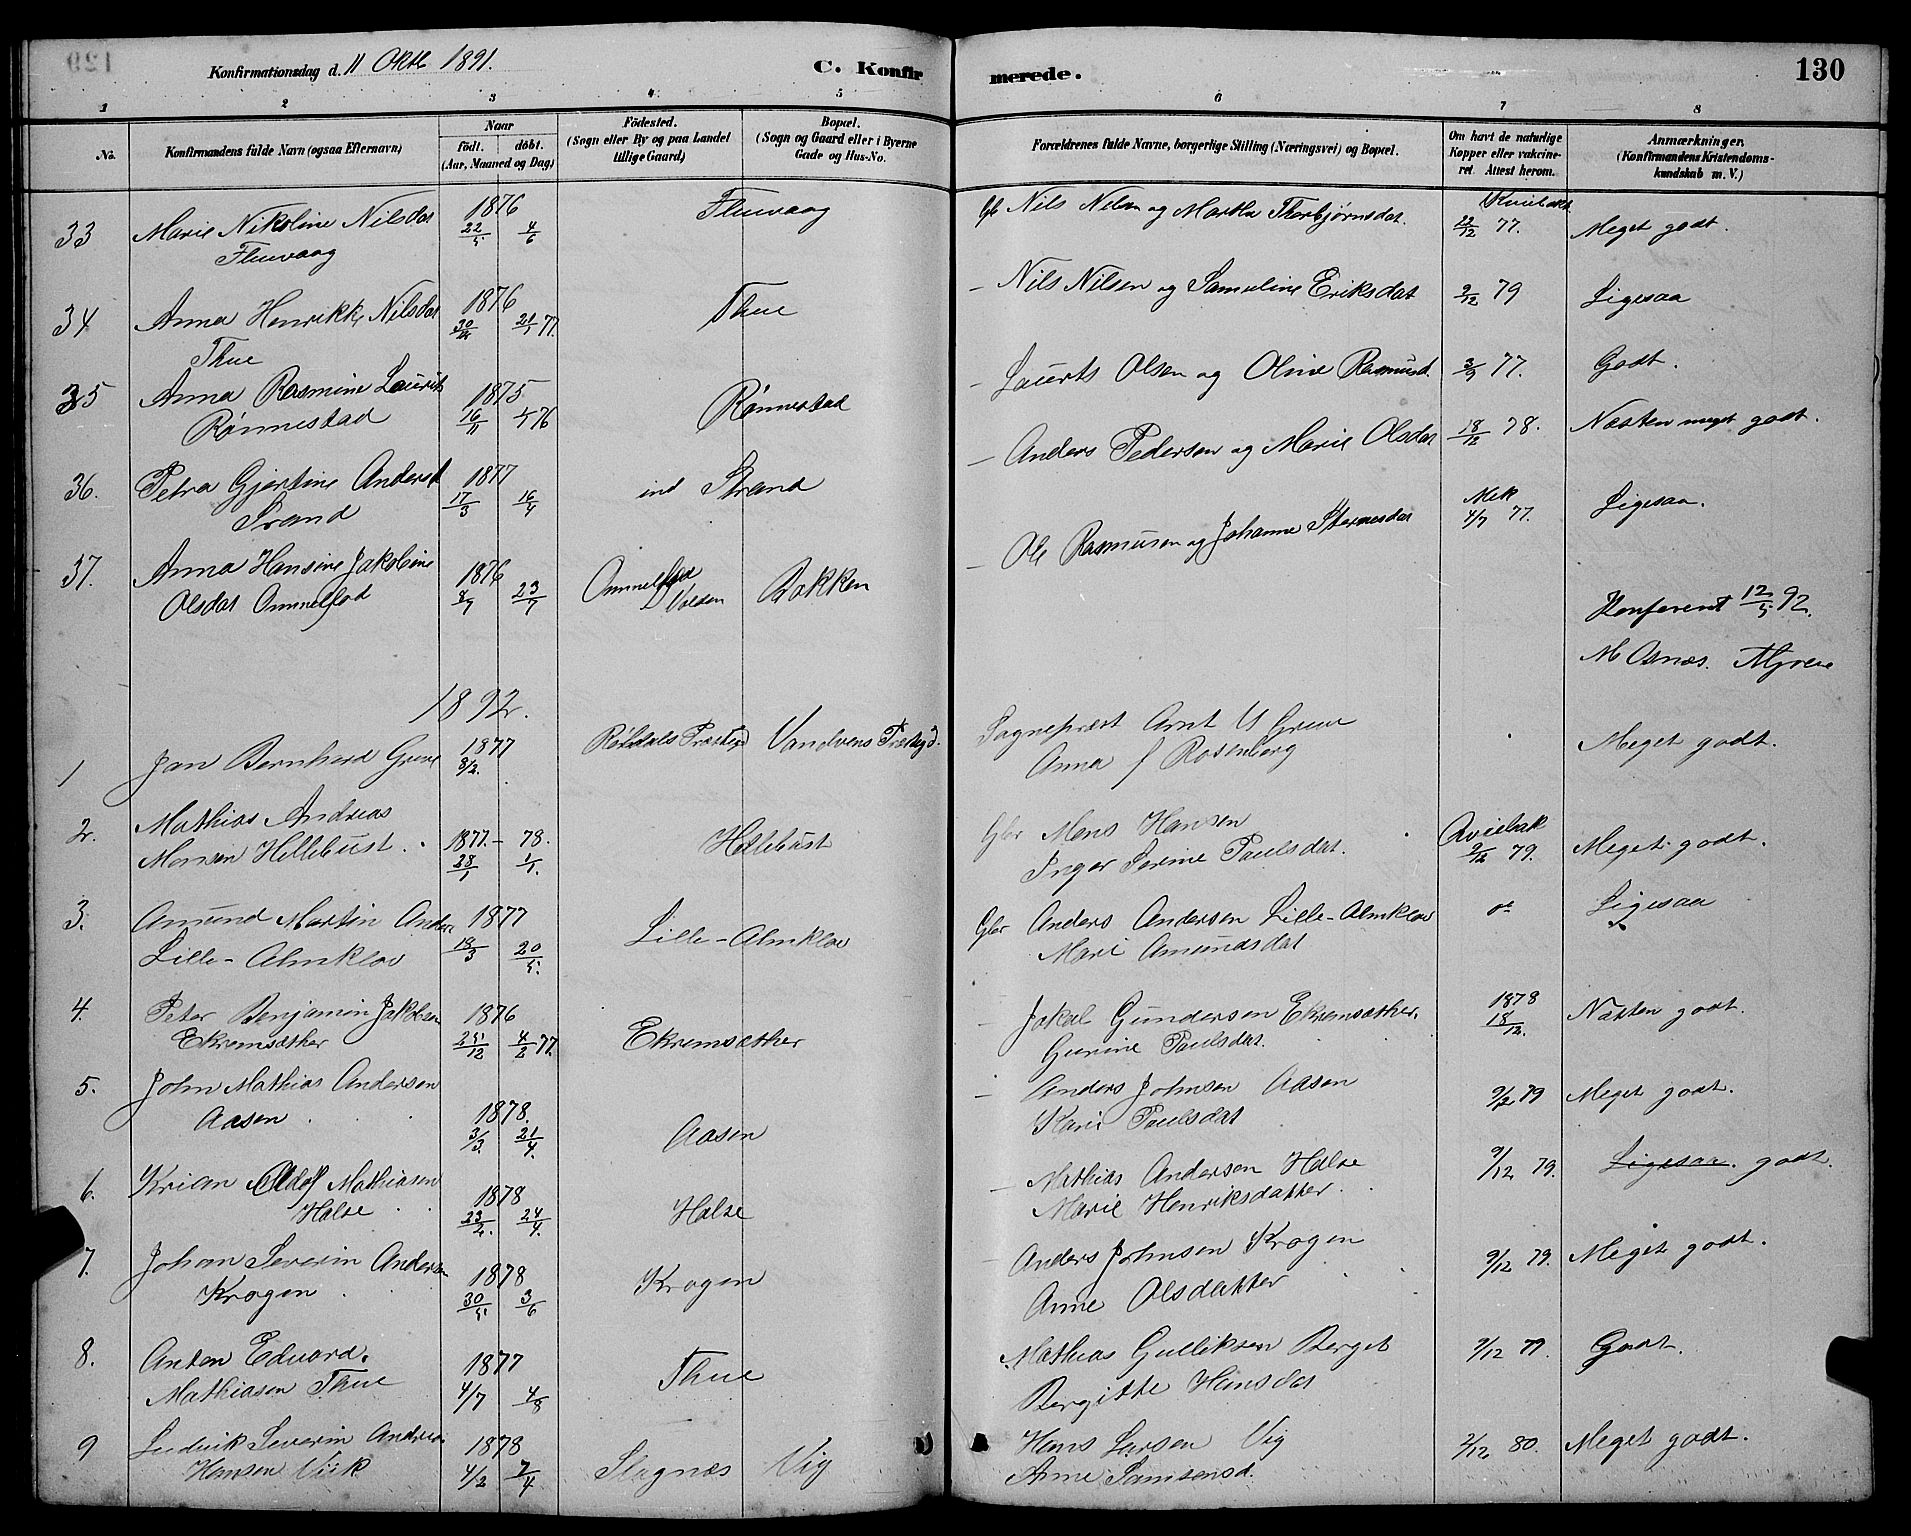 Konfirmationsdag d. 11 Oktb 1891.
C. Konfirmerede.
130
1 2 3 4 5 6 7 8
No.
Konfirmandens fulde Navn (ogsaa Efternavn)
Naar
födt. döbt.
(Aar, Maaned og Dag)
Födested.
(Sogn eller By og paa Landet
tillige Gaard)
Bopæl.
(Sogn og Gaard eller i Byerne
Gade og Hus-No.
Forældrenes fulde Navne, borgerlige Stilling (Næringsvei) og Bopæl.
Om havt de naturlige
Kopper eller vakcine-
ret Attest herom.
Anmærkninger.
(Konfirmandens Kristendoms-
kundskab m. V.)
33 Marie Nikoline Nilsdat 1876 22/5 4/6
Nils Nilsen og Martha Thorbjørnsdat. 12/12 77. Meget godt.
34 Anna Henrikke Nilsdat 1876 21/1 77. Thue
Thue
Nils Nilsen og Samuline Eriksdat 2/12 79 Ligesaa
35 Anna Rasmine Laurits 1875 16/11 Rönnestad
Rönnestad
Laurts Olsen og Oline Rasmusd. 3/9 77. Godt.
36. Petra Gjertine Andersd 1877 17/3 16/4 ind Strand
Strand
Anders Pedersen og Marie Olsdat 18/12 78. Næsten meget godt.
37. Anna Hansine Jakobine 1876 23/7 Volden Bakken
Olsdat
Ole Rasmusen og Johanne 4/7 77. Ligesaa.
Konfereret 12/5 92.
M Osnes.
1892.
1 Jan Bernhard Greve 1877 8/2. Vandvens Præstegd.
Sogneprest Arnt Greve
Anna f Rosenberg
Meget godt.
2. Mathias Andreas
Monsen Hellebust. 1877. - 78. 28/1 1/1. Hellebust
Mons Hansen
Inger Serine Paulsdat. 2/12 79. Meget godt.
3. Amund Martin Anders 1877 18/3 20/5. Lille-Almklov
Lille-Almklov
Anders Andersen Lille-Almklov
Mari Amundsdat
Ligesaa
4. Peter Benjamin Jakobsen 1876 25/12 4/2 77. Ekremsæther
Ekremsæther
Jakob Gundersen Ekremsæther.
Gurine Paulsdat. 1878 18/12. Næsten godt.
5. John Mathias Andersen
Aasen 1878. 3/3. 21/4. Aasen
Anders Johnsen Aasen
Kari Paulsdat 9/12 79 Meget godt.
6. Adolf Mathiasen
Halse 1878 24/4. Halse
Mathias Andersen Halse
Marie Henriksdatter 9/12 79. Ligesaa. godt.
7. Johan Severin Andersen
Krogen 1878 30/5. 3/6 Krogen
Anders Johnsen Krogen
Anne Olsdatter 9/12 79. Meget godt.
8. Anton Edvard
Mathiasen Thue 1877 4/7 4/8 Thue
Mathias Gulliksen Berget
Bergitte Hansdat 9/12 79. Godt.
9 Ludvik Severin Andreas
Hansen Viik 1878 4/2 7/4 Slagnæs Vig
Hans Larsen Vig
Anne Samsonsd. 2/12 80. Meget godt.